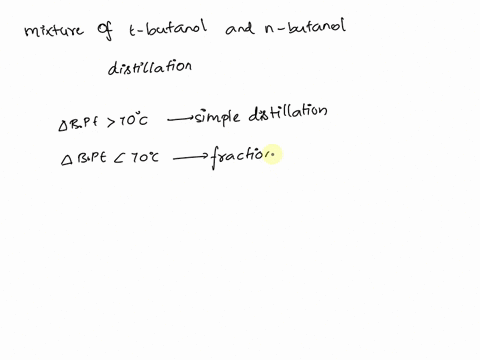 mixture of t-butanol and n-butanol
distillation
Δ B.Pt > 70°C → simple distillation
Δ B.Pt < 70°C → fraction